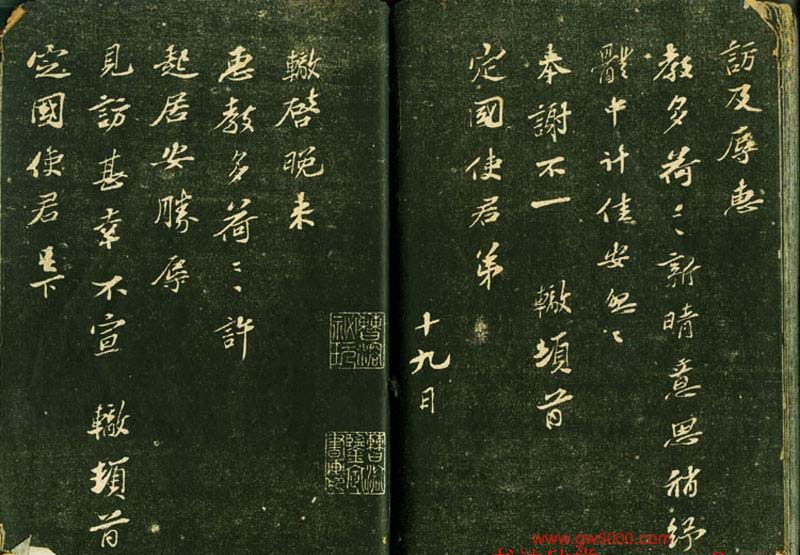 訪及辱惠
教多荷〻新晴意思稍紓
體中計佳安勉〻
奉謝不一　轍頓首
定國使君弟
十九日
轍啓晚來
惠教多荷〻許
起居安勝辱
見訪甚幸不宣　轍頓首
定國使君足下
曹溶
秘玩
曹溶
鑒定
書畫印
www.gw5000.com